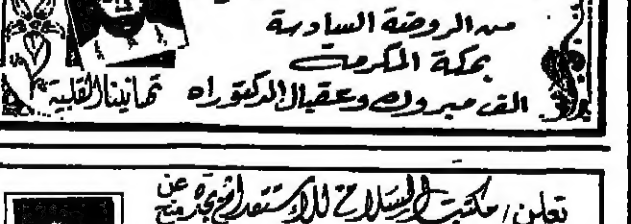 من الروضة السادسة
بمكة المكرمة
الف مبروك وعقبال الدكتوراه تهانينا القلبية
تعلن / مكتب السلام للاستقدام بجدة عن